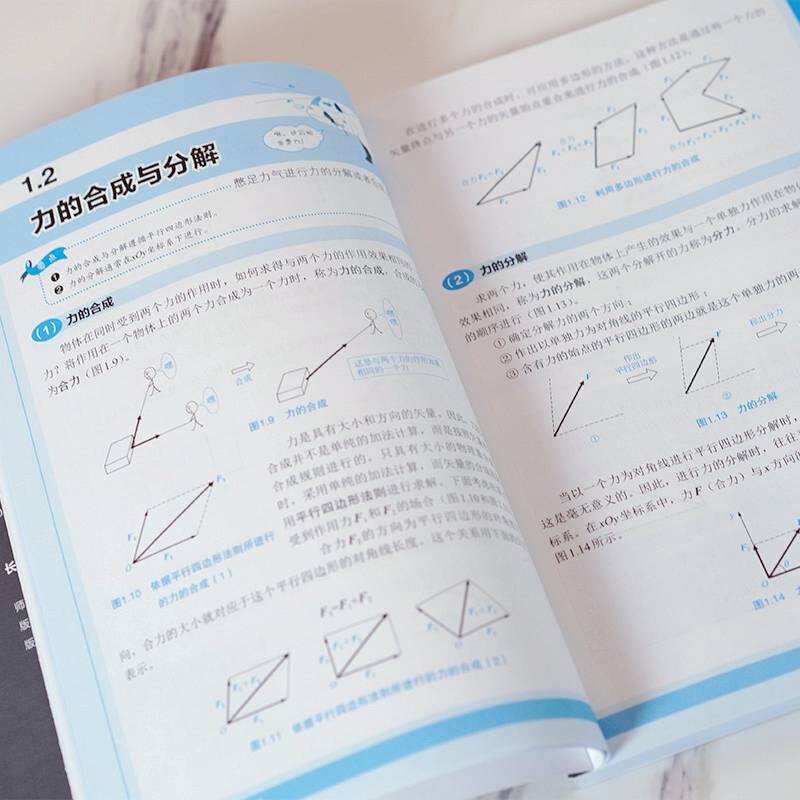 1.2
力的合成与分解
憋足力气进行力的分解或者合成
要点
❶ 力的合成与分解遵循平行四边形法则。
❷ 力的分解通常在xOy坐标系下进行。
(1) 力的合成
物体在同时受到两个力的作用时，如何求得与两个力的作用效果相同的
力？将作用在一个物体上的两个力合成为一个力时，称为力的合成，合成的
为合力（图1.9）。
嘿
嘿
合成
嘿
嘿
这是与两个力的作用效果
相同的一个力
图1.9 力的合成
力是具有大小和方向的矢量。因此，
合成并不是单纯的加法计算，而是按照
合成规则进行的。只具有大小的物理量
时，采用单纯的加法计算，而矢量的合成
用平行四边形法则进行求解。下面考虑
受到作用力F₁和F₂的场合（图1.10和图1.
合力F₃的方向为平行四边形的对角
F₂
F₃
F₁
图1.10 依据平行四边形法则所进行
的力的合成（1）
向，合力的大小就对应于这个平行四边形的对角线长度，这个关系用下面的
表示。
F₃=F₁+F₂
F₂
F₁+F₂
F₁
F₂
F₁+F₂
F₁
F₂
F₁+F₂
F₁
图1.11 依据平行四边形法则所进行的力的合成（2）
在进行多个力的合成时，可应用多边形的方法。这种方法是通过将一个力的
矢量终点与另一个力的矢量始点重合来进行力的合成（图1.12）。
图1.12 利用多边形进行力的合成
(2) 力的分解
求两个力，使其作用在物体上产生的效果与一个单独力作用在物体
效果相同，称为力的分解，这两个分解开的力称为分力。分力的求解
的顺序进行（图1.13）。
① 确定分解力的两个方向；
② 作出以单独力为对角线的平行四边形；
③ 含有力的始点的平行四边形的两边就是这个单独力的两
F
作出
平行四边形
F
标出分力
①
②
图1.13 力的分解
当以一个力为对角线进行平行四边形分解时，
这是毫无意义的。因此，进行力的分解时，往往
标系。在xOy坐标系中，力F（合力）与x方向的
图1.14所示。
y
F
O
θ
图1.14